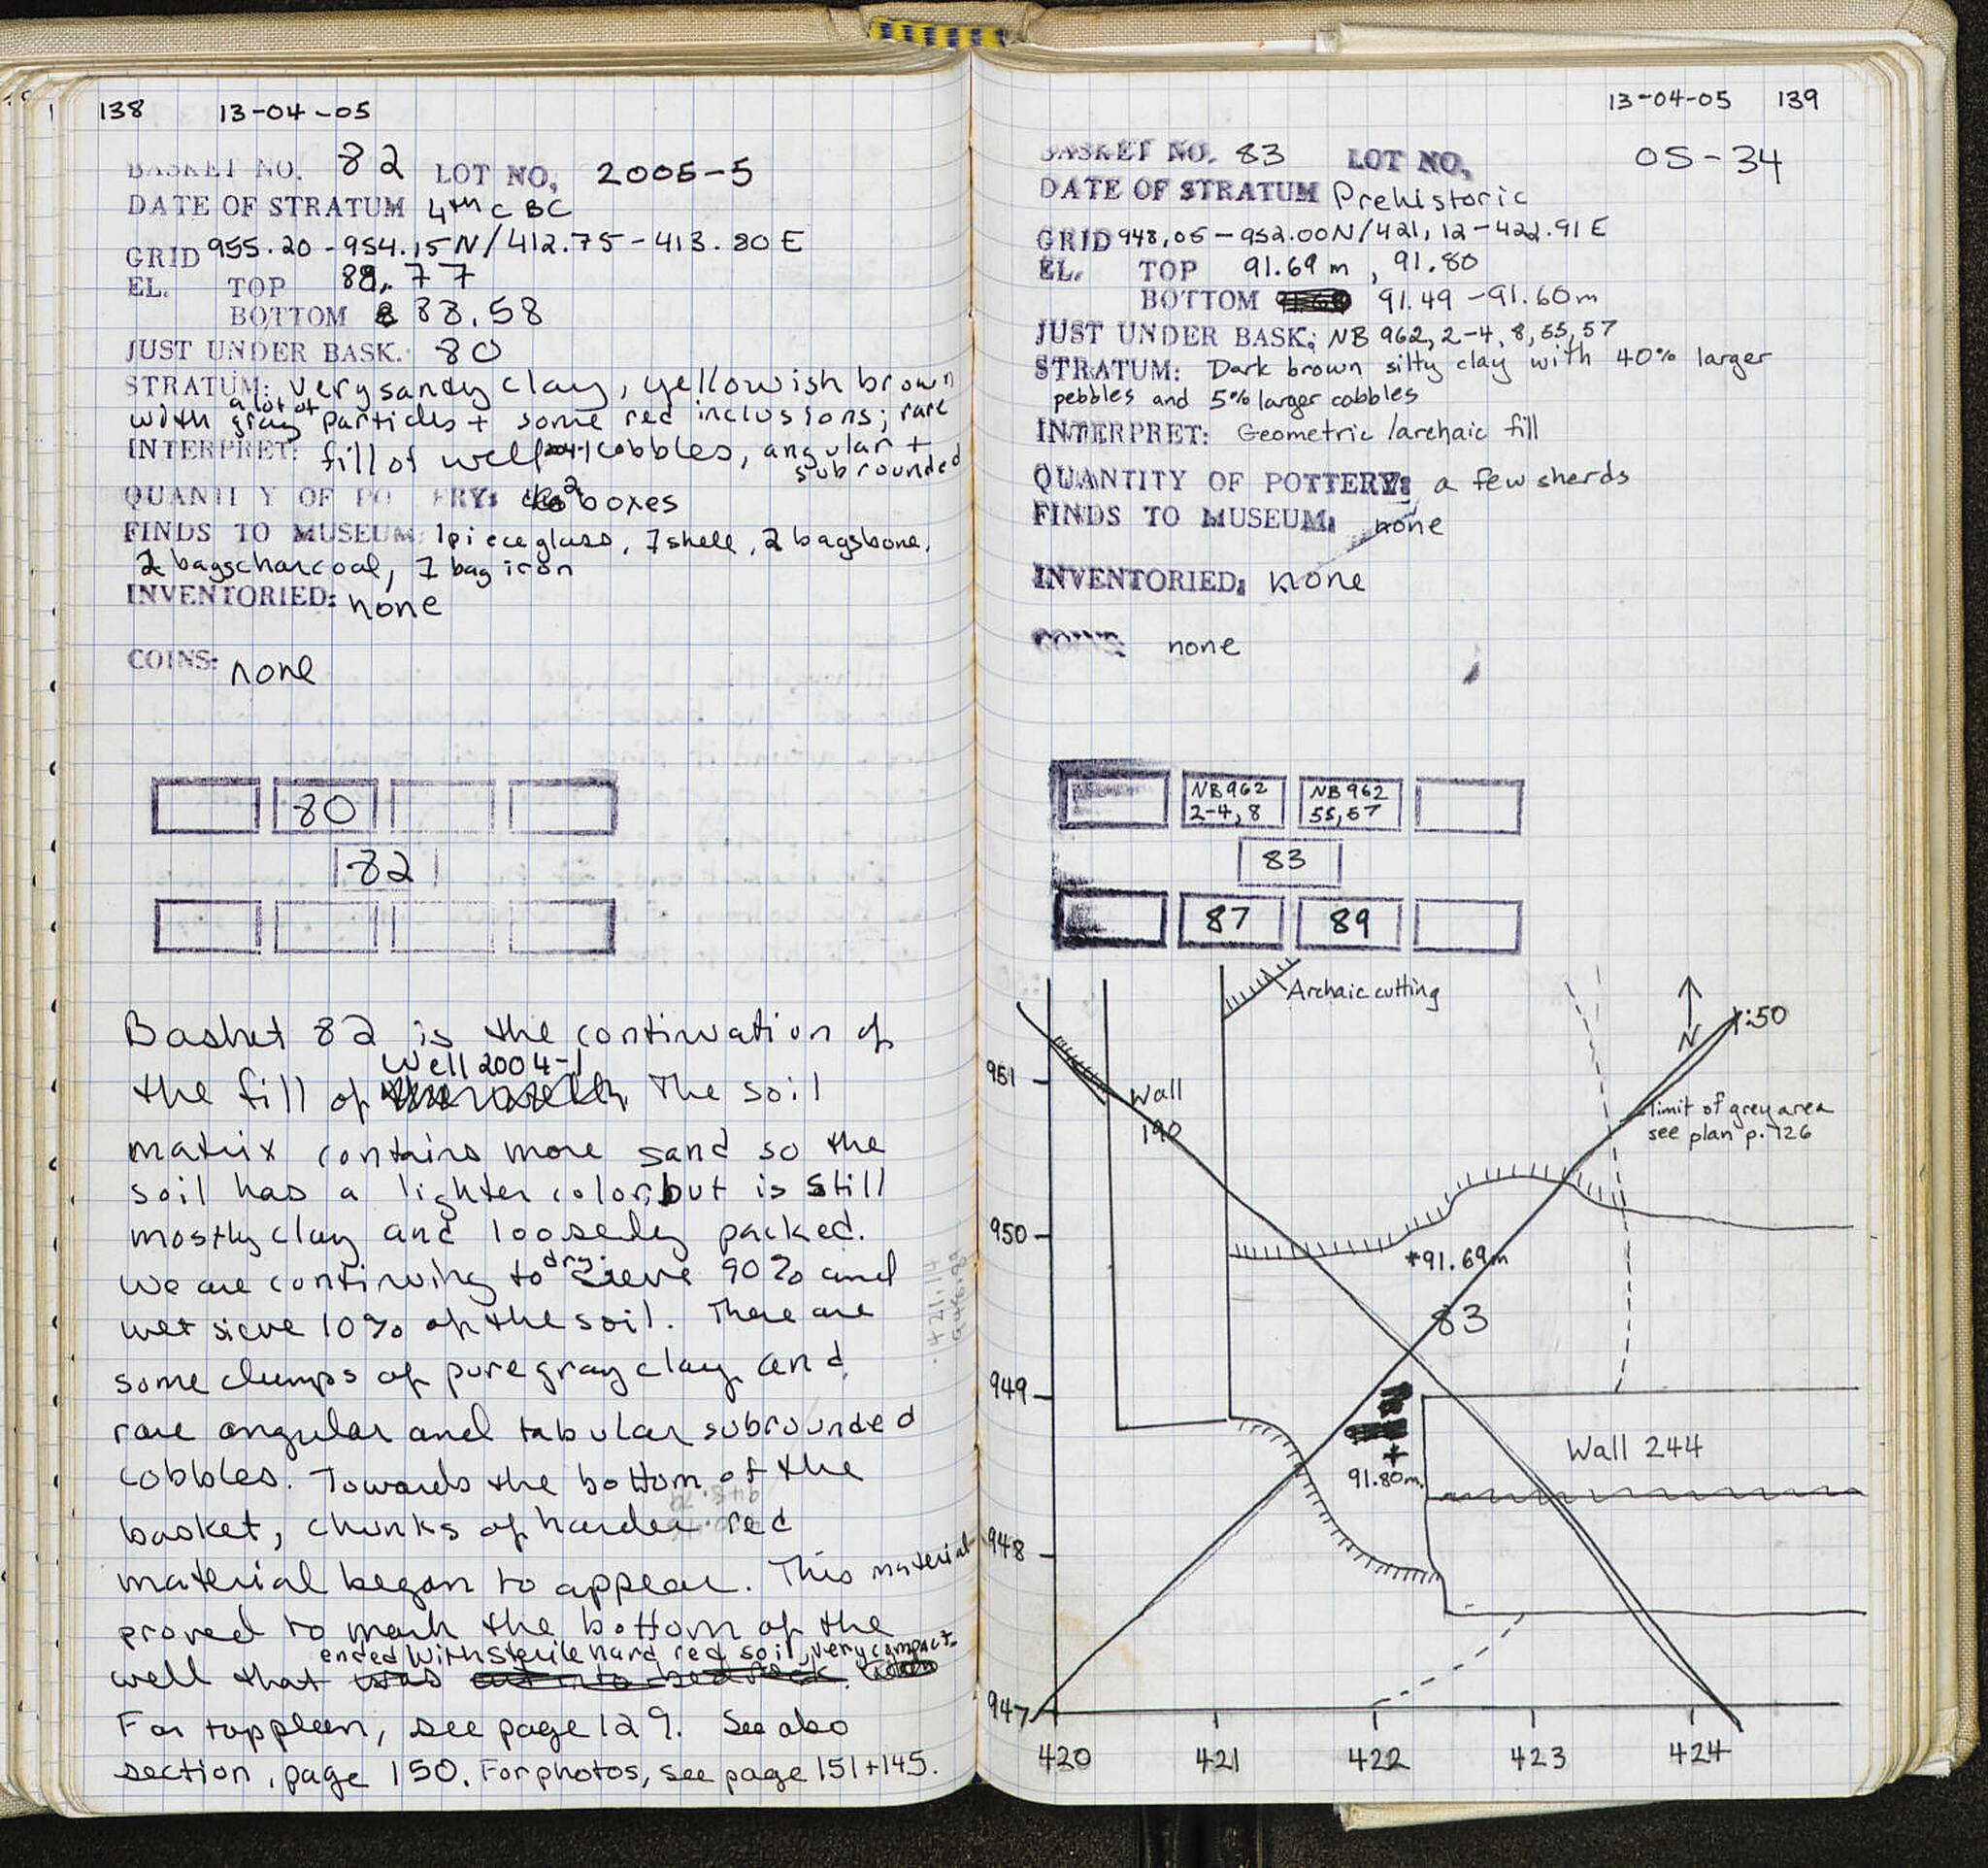 138 13-04-05
BASKET NO. 82 LOT NO. 2005-5
DATE OF STRATUM 4th C BC
GRID 955.20-954.15N/412.75-413.80E
EL. TOP 89.77
BOTTOM 88.58
JUST UNDER BASK. 80
STRATUM: very sandy clay, yellowish brown
with a lot of gray particles + some red inclusions; rare
INTERPRET: fill of well 2004-1 cobbles, angular +
subrounded
QUANTITY OF POTTERY: 2 boxes
FINDS TO MUSEUM: 1 piece glass, 1 shell, 2 bags bone,
2 bags charcoal, 1 bag iron
INVENTORIED: none
COINS: none
80
82
Basket 82 is the continuation of
Well 2004-1
the fill of The soil
matrix contains more sand so the
soil has a lighter color, but is still
mostly clay and loosely packed.
We are continuing to dry sieve 90% and
wet sieve 10% of the soil. There are
some clumps of pure gray clay and
rare angular and tabular subrounded
cobbles. Towards the bottom of the
basket, chunks of harder red
material began to appear. This material
proved to mark the bottom of the
ended with sterile hard red soil, very compact.
well that was cut into bedrock.
For top plan, see page 129. See also
section, page 150. For photos, see page 151+145.
13-04-05 139
BASKET NO. 83 LOT NO. 05-34
DATE OF STRATUM Prehistoric
GRID 948.05-952.00N/421.12-422.91E
EL. TOP 91.69m, 91.80
BOTTOM 91.49-91.60m
JUST UNDER BASK: NB 962, 2-4, 8, 55, 57
STRATUM: Dark brown silty clay with 40% larger
pebbles and 5% larger cobbles
INTERPRET: Geometric/archaic fill
QUANTITY OF POTTERY: a few sherds
FINDS TO MUSEUM: none
INVENTORIED: none
COINS: none
NB962 2-4,8
NB962 55,57
83
87 89
Archaic cutting
N 1:50
951
Wall 190
limit of grey area
see plan p. 126
950
*91.69m
83
949
Wall 244
+
91.80m
948
947
420 421 422 423 424